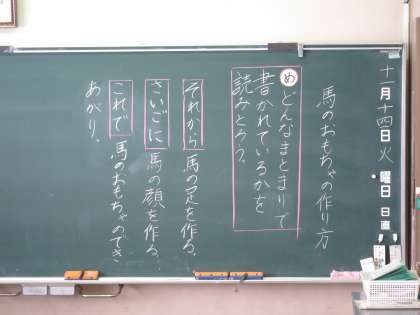 十月十四日火曜日
日直
馬のおもちゃの作り方
め
どんなまとまりで
書かれているかを
読みとろう。
それから馬の足を作る。
さいごに馬の顔を作る。
これで馬のおもちゃのでき
あがり。